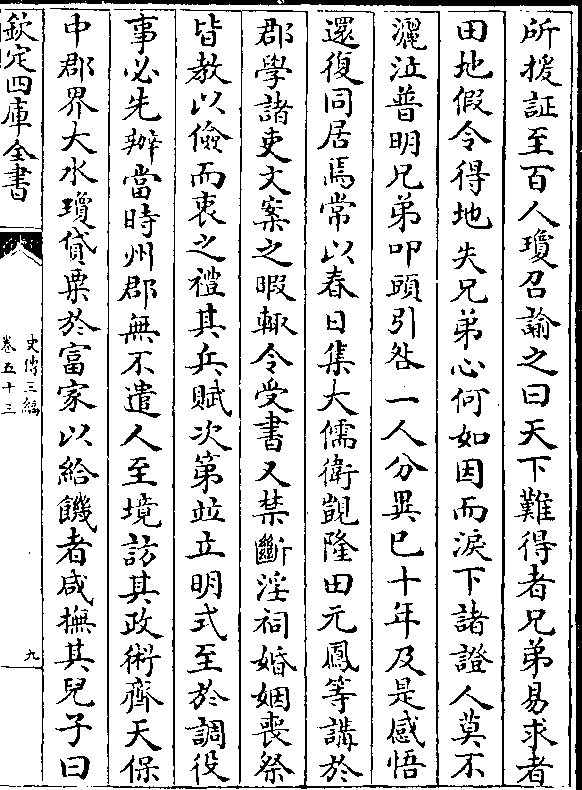 所援証至百人瓊召諭之曰天下難得者兄弟易求者
田地假令得地失兄弟心何如因而淚下諸證人莫不
灑泣普明兄弟叩頭引咎一人分異已十年及是感悟
還復同居焉常以春日集大儒衛覬隆田元鳳等講於
郡學諸吏文案之暇輙令受書又禁斷淫祠婚姻喪祭
皆教以儉而衷之禮其兵賦次第竝立明式至於調役
事必先辦當時州郡無不遣人至境訪其政術齊天保
中郡界大水瓊貸粟於富家以給饑者咸撫其兒子曰
欽定四庫全書
史傳三編
卷五十三
九